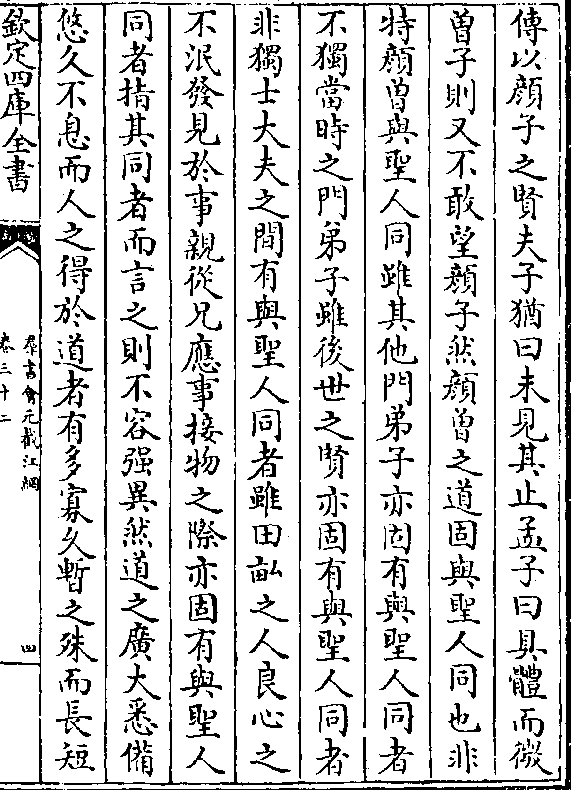 傳以顔子之賢夫子猶曰未見其止孟子曰具體而微
曽子則又不敢望顔子然顔曽之道固與聖人同也非
特顔曽與聖人同雖其他門弟子亦固有與聖人同者
不獨當時之門弟子雖後世之賢亦固有與聖人同者
非獨士大夫之間有與聖人同者雖田畝之人良心之
不泯發見於事親從兄應事接物之際亦固有與聖人
同者指其同者而言之則不容强異然道之廣大悉備
悠久不息而人之得於道者有多寡久暫之殊而長短
欽定四庫全書
羣書會元截江網
卷三十二
四